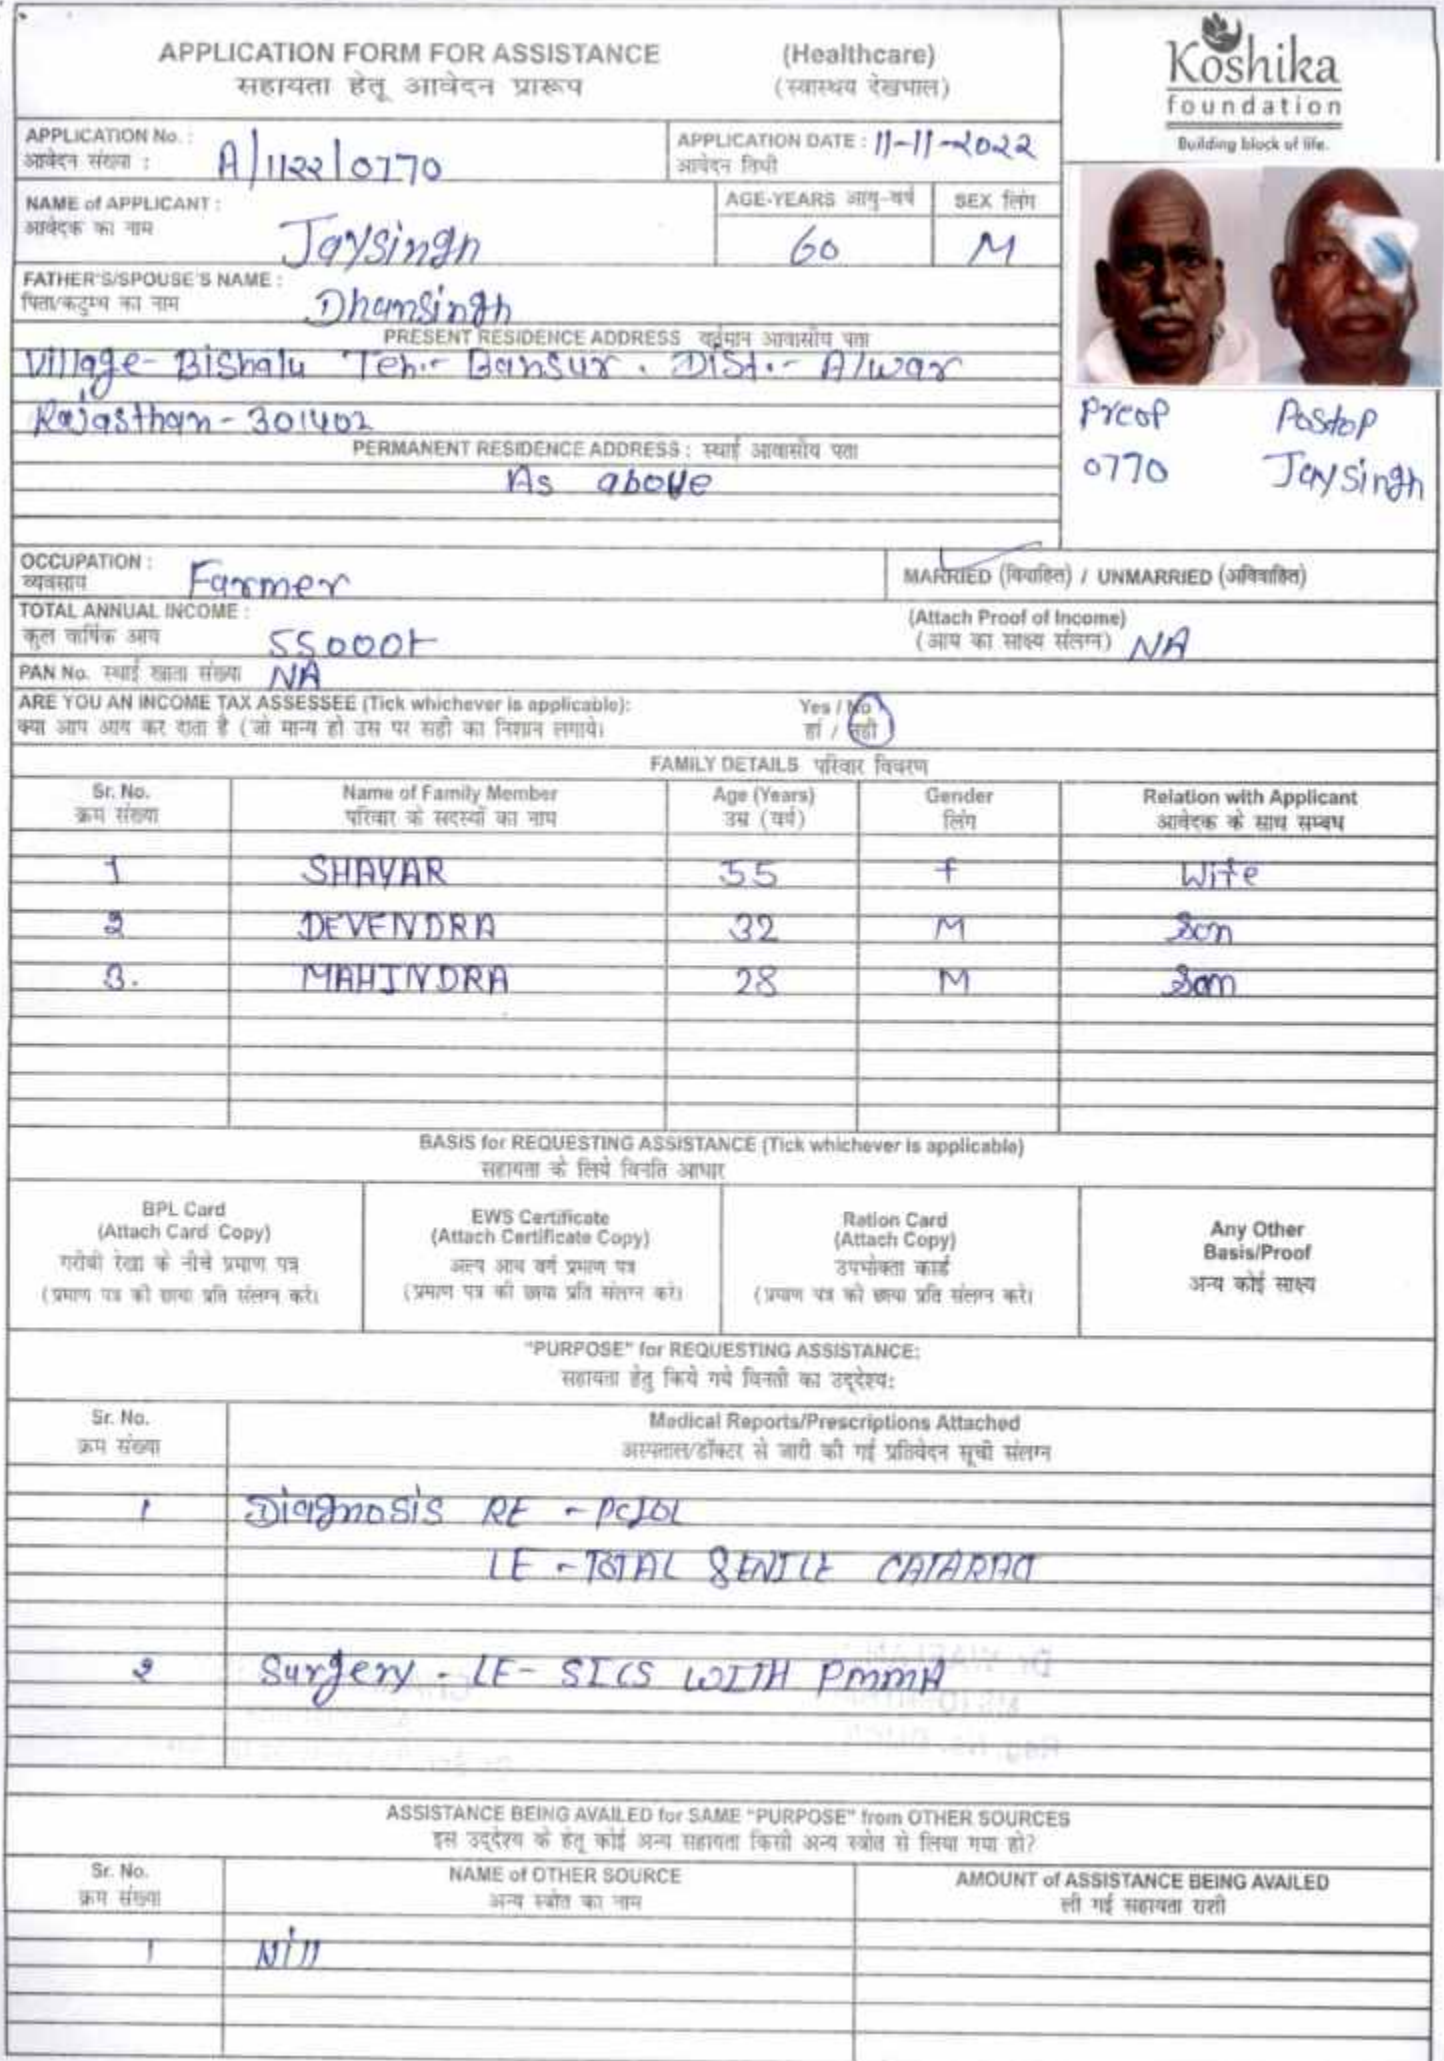 APPLICATION FORM FOR ASSISTANCE (Healthcare)
सहायता हेतू आवेदन प्रारूप (स्वास्थय देखभाल)
Koshika
foundation
Building block of life.
APPLICATION No. : A/1122/0770
आवेदन संख्या :
APPLICATION DATE : 11-11-2022
आवेदन तिथी
NAME of APPLICANT : Jaysingh
आवेदक का नाम
AGE-YEARS आयु-वर्ष 60
SEX लिंग M
FATHER'S/SPOUSE'S NAME : Dhamsingh
पिता/कटुम्ब का नाम
PRESENT RESIDENCE ADDRESS वर्तमान आवासीय पता
Village- Bishalu Teh.- Bansur. Dist.- Alwar
Rajasthan- 301402
PERMANENT RESIDENCE ADDRESS : स्थाई आवासीय पता
As above
Preop Postop
0770 Jaysingh
OCCUPATION : Farmer
व्यवसाय
MARRIED (विवाहित) / UNMARRIED (अविवाहित)
TOTAL ANNUAL INCOME : 55000/-
कुल वार्षिक आय
(Attach Proof of Income)
(आय का साक्ष्य संलग्न) NA
PAN No. स्थाई खाता संख्या NA
ARE YOU AN INCOME TAX ASSESSEE (Tick whichever is applicable): Yes / No
क्या आप आय कर दाता है (जो मान्य हो उस पर सही का निशान लगाये। हां / नहीं
FAMILY DETAILS परिवार विवरण
Sr. No. Name of Family Member Age (Years) Gender Relation with Applicant
क्रम संख्या परिवार के सदस्यों का नाम उम्र (वर्ष) लिंग आवेदक के साथ सम्बध
1 SHAYAR 55 f Wife
2 DEVENDRA 32 M Son
3. MAHINDRA 28 M Son
BASIS for REQUESTING ASSISTANCE (Tick whichever is applicable)
सहायता के लिये विनति आधार
BPL Card
(Attach Card Copy)
गरीबी रेखा के नीचे प्रमाण पत्र
(प्रमाण पत्र की छाया प्रति संलग्न करे।
EWS Certificate
(Attach Certificate Copy)
अल्प आय वर्ग प्रमाण पत्र
(प्रमाण पत्र की छाया प्रति संलग्न करे।
Ration Card
(Attach Copy)
उपभोक्ता कार्ड
(प्रमाण पत्र की छाया प्रति संलग्न करे।
Any Other
Basis/Proof
अन्य कोई साक्ष्य
"PURPOSE" for REQUESTING ASSISTANCE:
सहायता हेतु किये गये विनती का उद्देश्य:
Sr. No. Medical Reports/Prescriptions Attached
क्रम संख्या अस्पताल/डॉक्टर से जारी की गई प्रतिवेदन सूची संलग्न
1 Diagnosis RE - PCIOL
LE - TOTAL SENILE CATARACT
2 Surgery - LE- SICS WITH PMMA
ASSISTANCE BEING AVAILED for SAME "PURPOSE" from OTHER SOURCES
इस उद्देश्य के हेतू कोई अन्य सहायता किसी अन्य स्त्रोत से लिया गया हो?
Sr. No. NAME of OTHER SOURCE AMOUNT of ASSISTANCE BEING AVAILED
क्रम संख्या अन्य स्त्रोत का नाम ली गई सहायता राशी
1 Nill